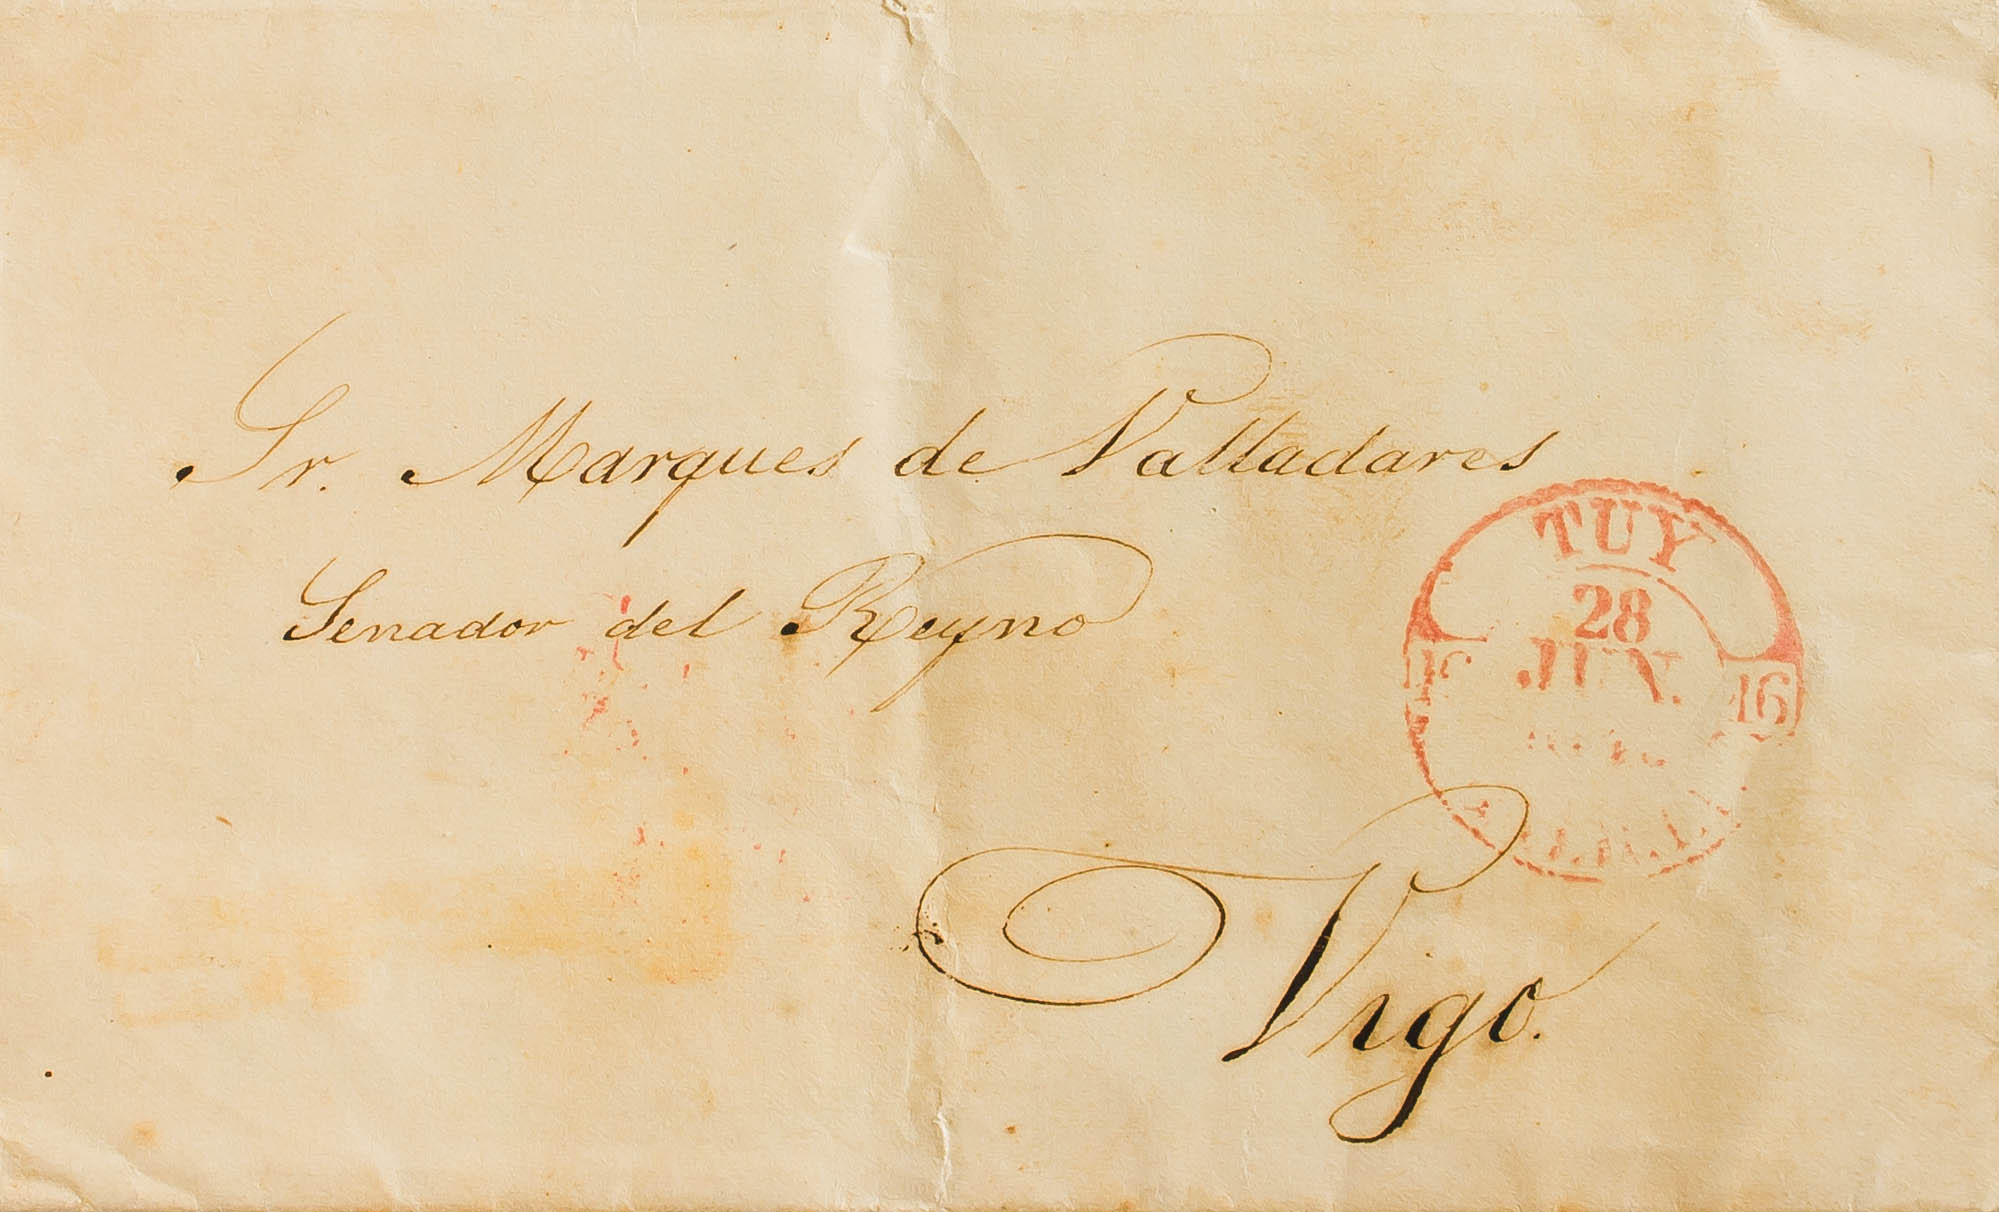 Sr. Marques de Valladares
Senador del Reyno
TUY
28
JUN.
16
16
Vigo.